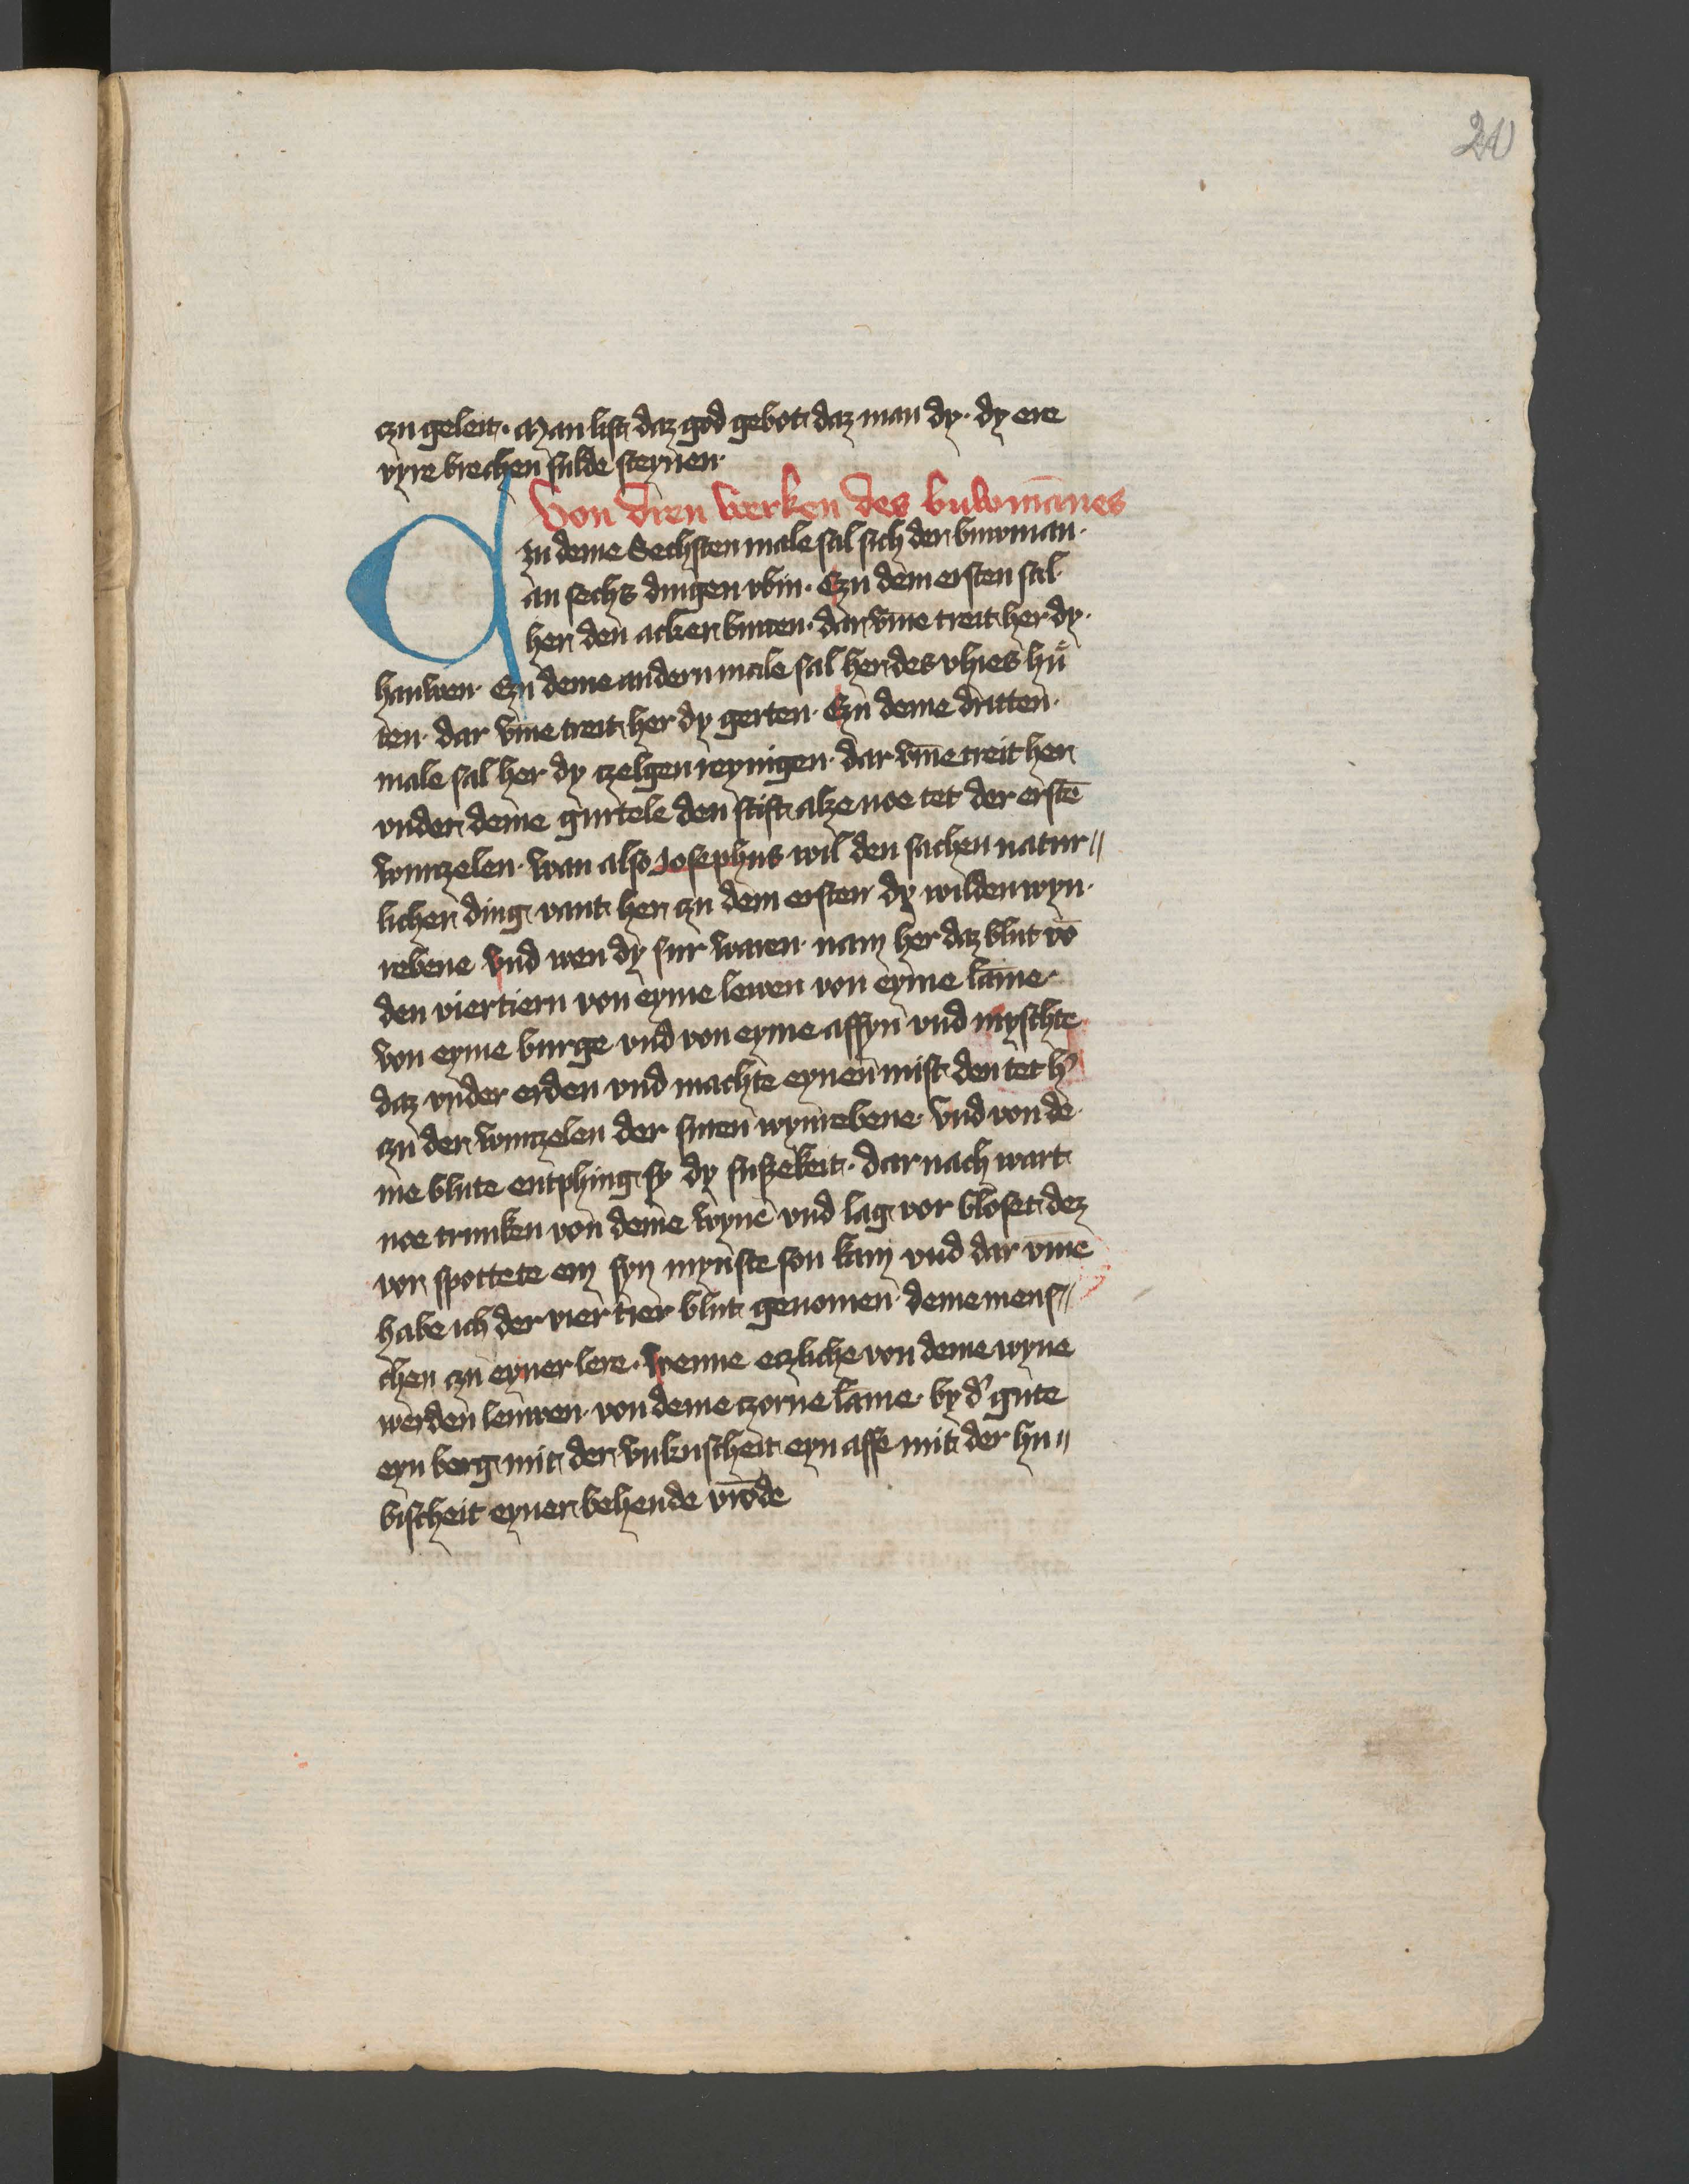 20
czu geleit · Man list daz god gebot daz man dy · dy ere
vyre brechen sulde steynen ·
Von dren werken des buwmānes
Czu deme Sechsten male sal sich der buwman ·
an sechs dingen vbin · Czu dem ersten sal
her den acker buwen · dar vm̄e treit her dy ·
hauwen · Czu deme andern male sal her des vhies hů
ten · dar vm̄e treit her dy gerten · Czu deme dritten ·
male sal her dy czelgen reynigen · dar vm̄e treit her
vnder deme gurtele den stift alze noe tet der erstē
wurczelen · wan also Josephus wil den sachen natur〃
licher ding vant her czu dem ersten dy wilden wyn ·
rebene vnd wen dy sur waren · nam her daz blut vō
den vier tiern von eyme lewen von eyme lām̄e ·
von eyme burge vnd von eyme affyn vnd myschte
daz vnder erden vnd machte eynen mist den tet h'
czu der wurczelen der suren wynrebene · vnd von de
me blute entphing sy dy suszekeit · dar nach wart
noe trunken von deme wyne vnd lag vor bloset dez
vor spottete em syn mynste son kam vnd dar vm̄e
habe ich der vier tier blut genomen · deme mens〃
chen czu eyner lere · wenne eczliche von deme wyne
werden leuwen · von deme czorne lām̄e · by d' gute
eyn berg mit der vnkuscheit eyn affe mit der hu〃
bischeit eyner behende vrōde